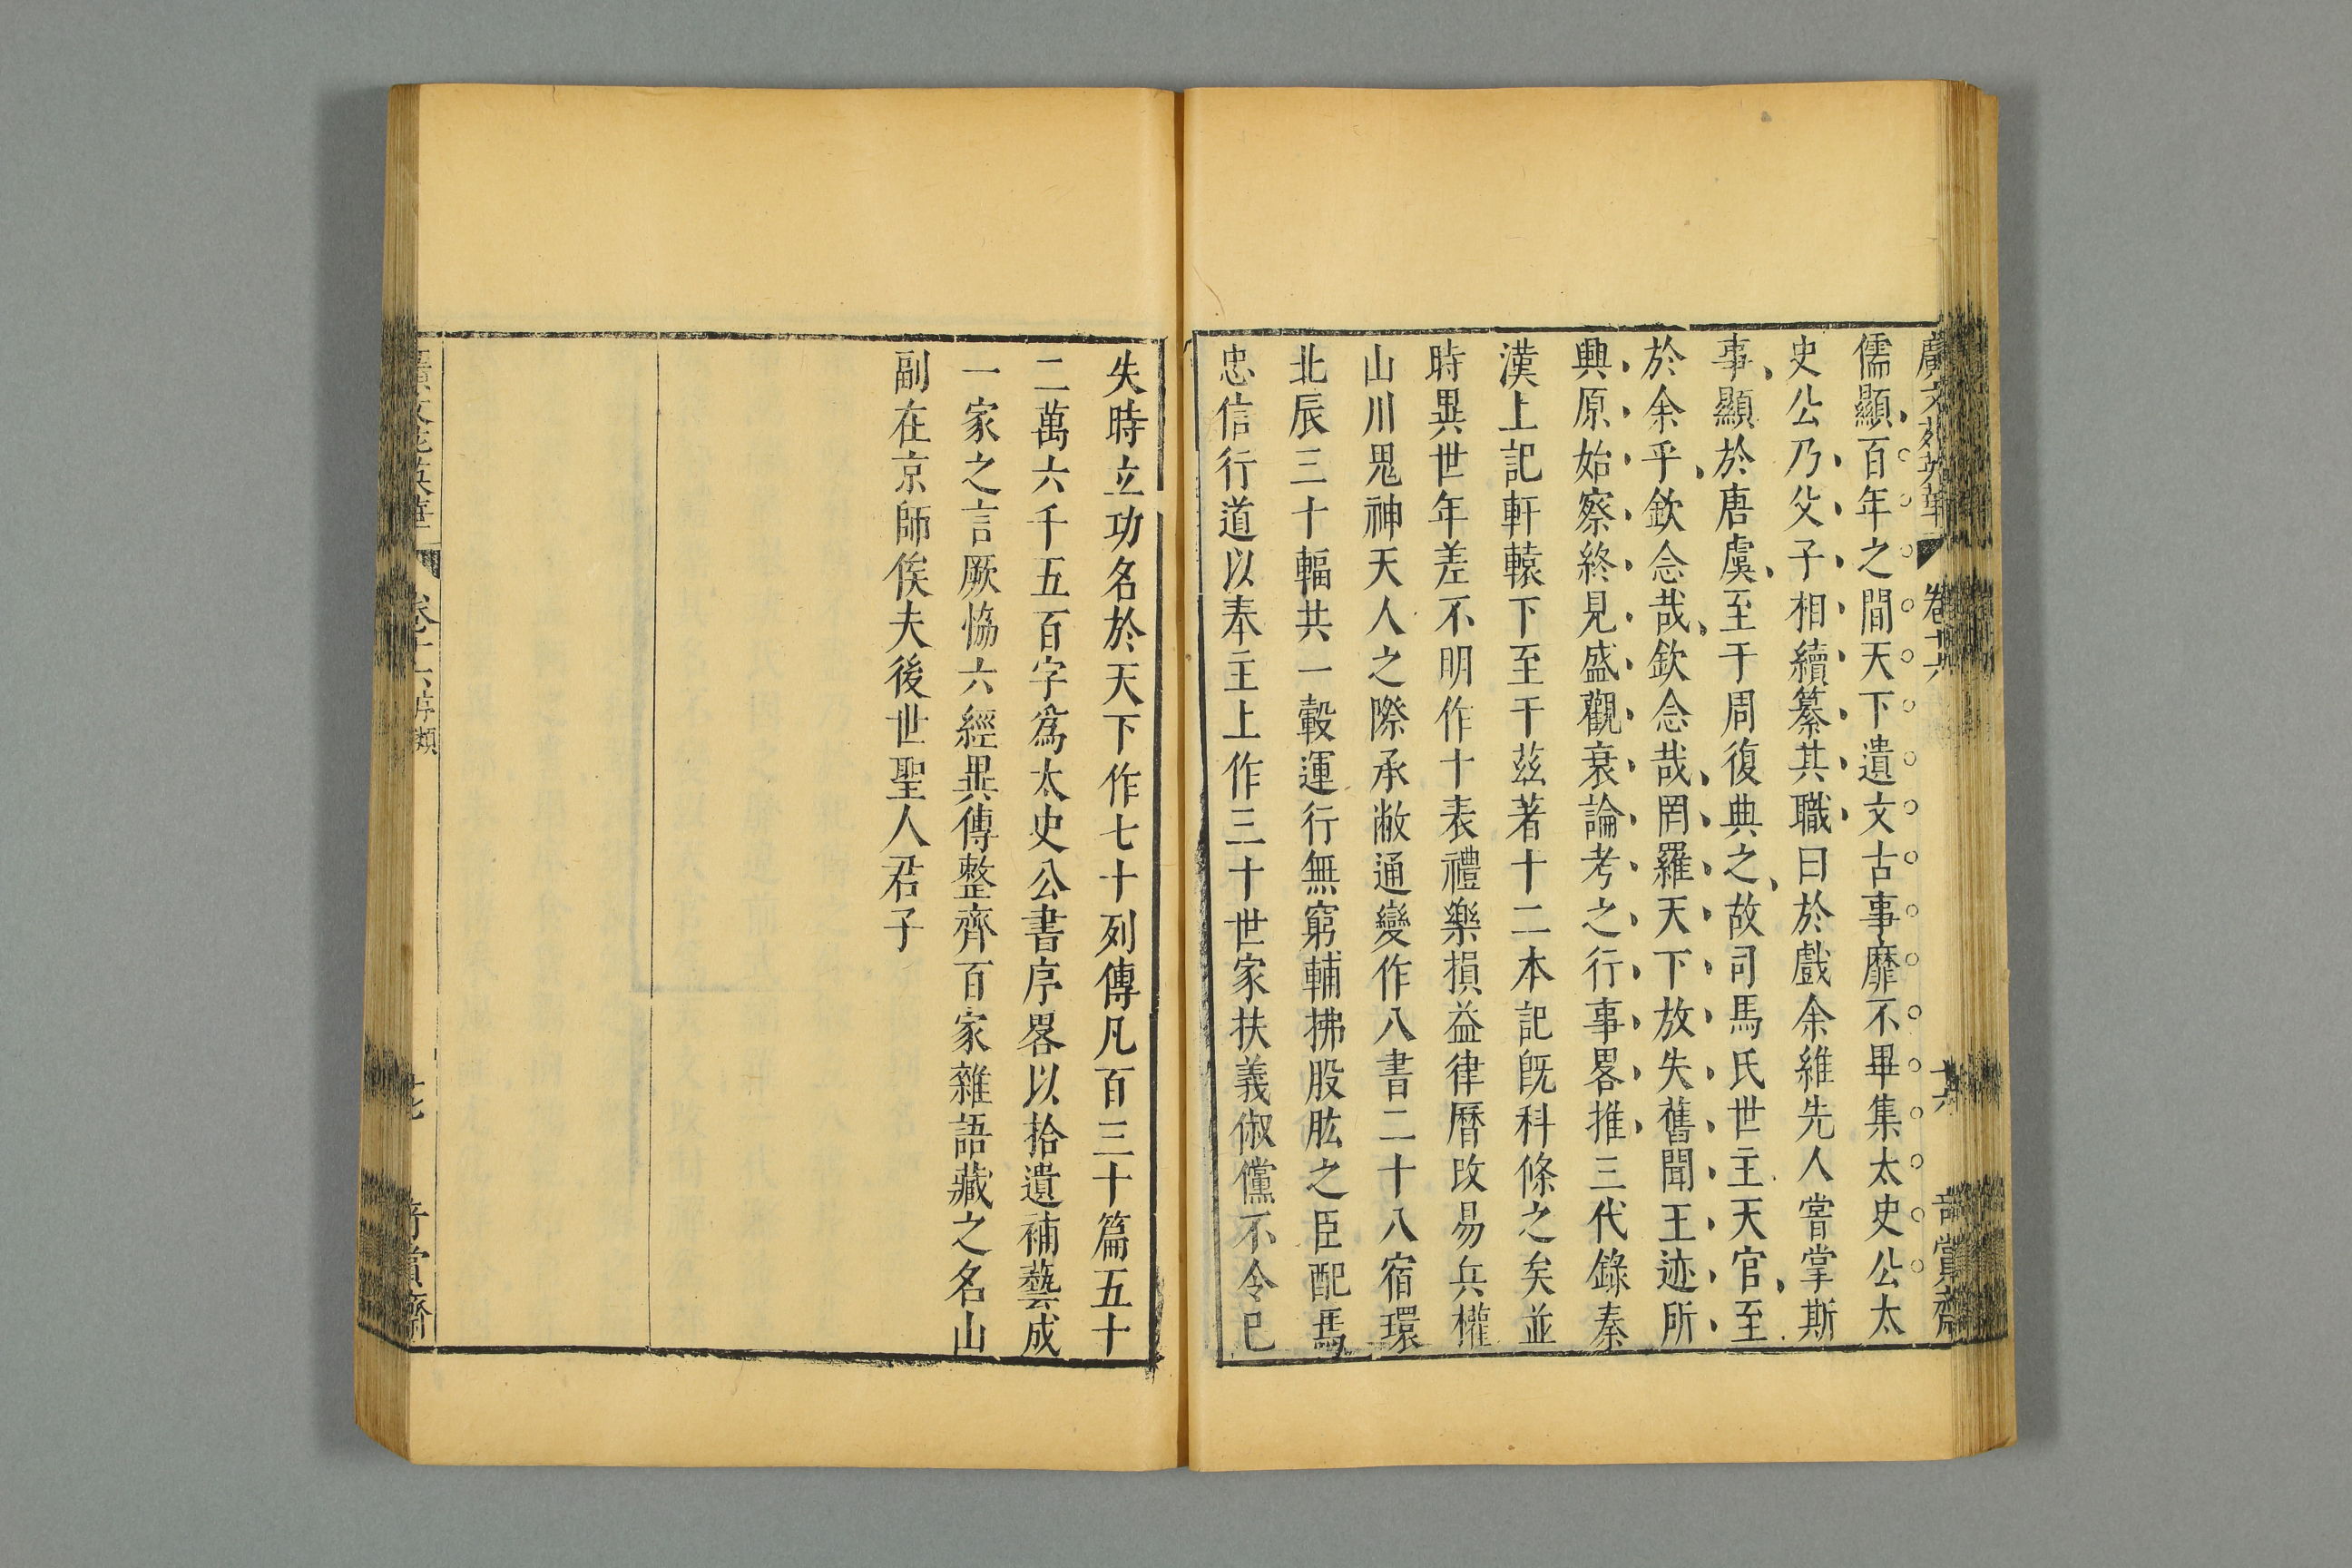 廣文苑英華 卷十六
儒顯百年之間天下遺文古事靡不畢集太史公太
史公乃父子相續纂其職曰於戲余維先人嘗掌斯
事顯於唐虞至于周復典之故司馬氏世主天官至
於余乎欽念哉欽念哉罔羅天下放失舊聞王迹所
興原始察終見盛觀衰論考之行事畧推三代錄秦
漢上記軒轅下至于茲著十二本記旣科條之矣並
時異世年差不明作十表禮樂損益律曆改易兵權
山川鬼神天人之際承敝通變作八書二十八宿環
北辰三十輻共一轂運行無窮輔拂股肱之臣配焉
忠信行道以奉主上作三十世家扶義俶儻不令已
失時立功名於天下作七十列傳凡百三十篇五十
二萬六千五百字爲太史公書序畧以拾遺補藝成
一家之言厥協六經異傳整齊百家雜語藏之名山
副在京師俟後世聖人君子
卷十六 序類